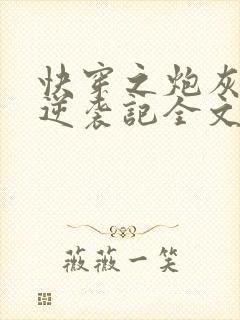 快穿之炮灰
逆袭記全文
薇薇一笑